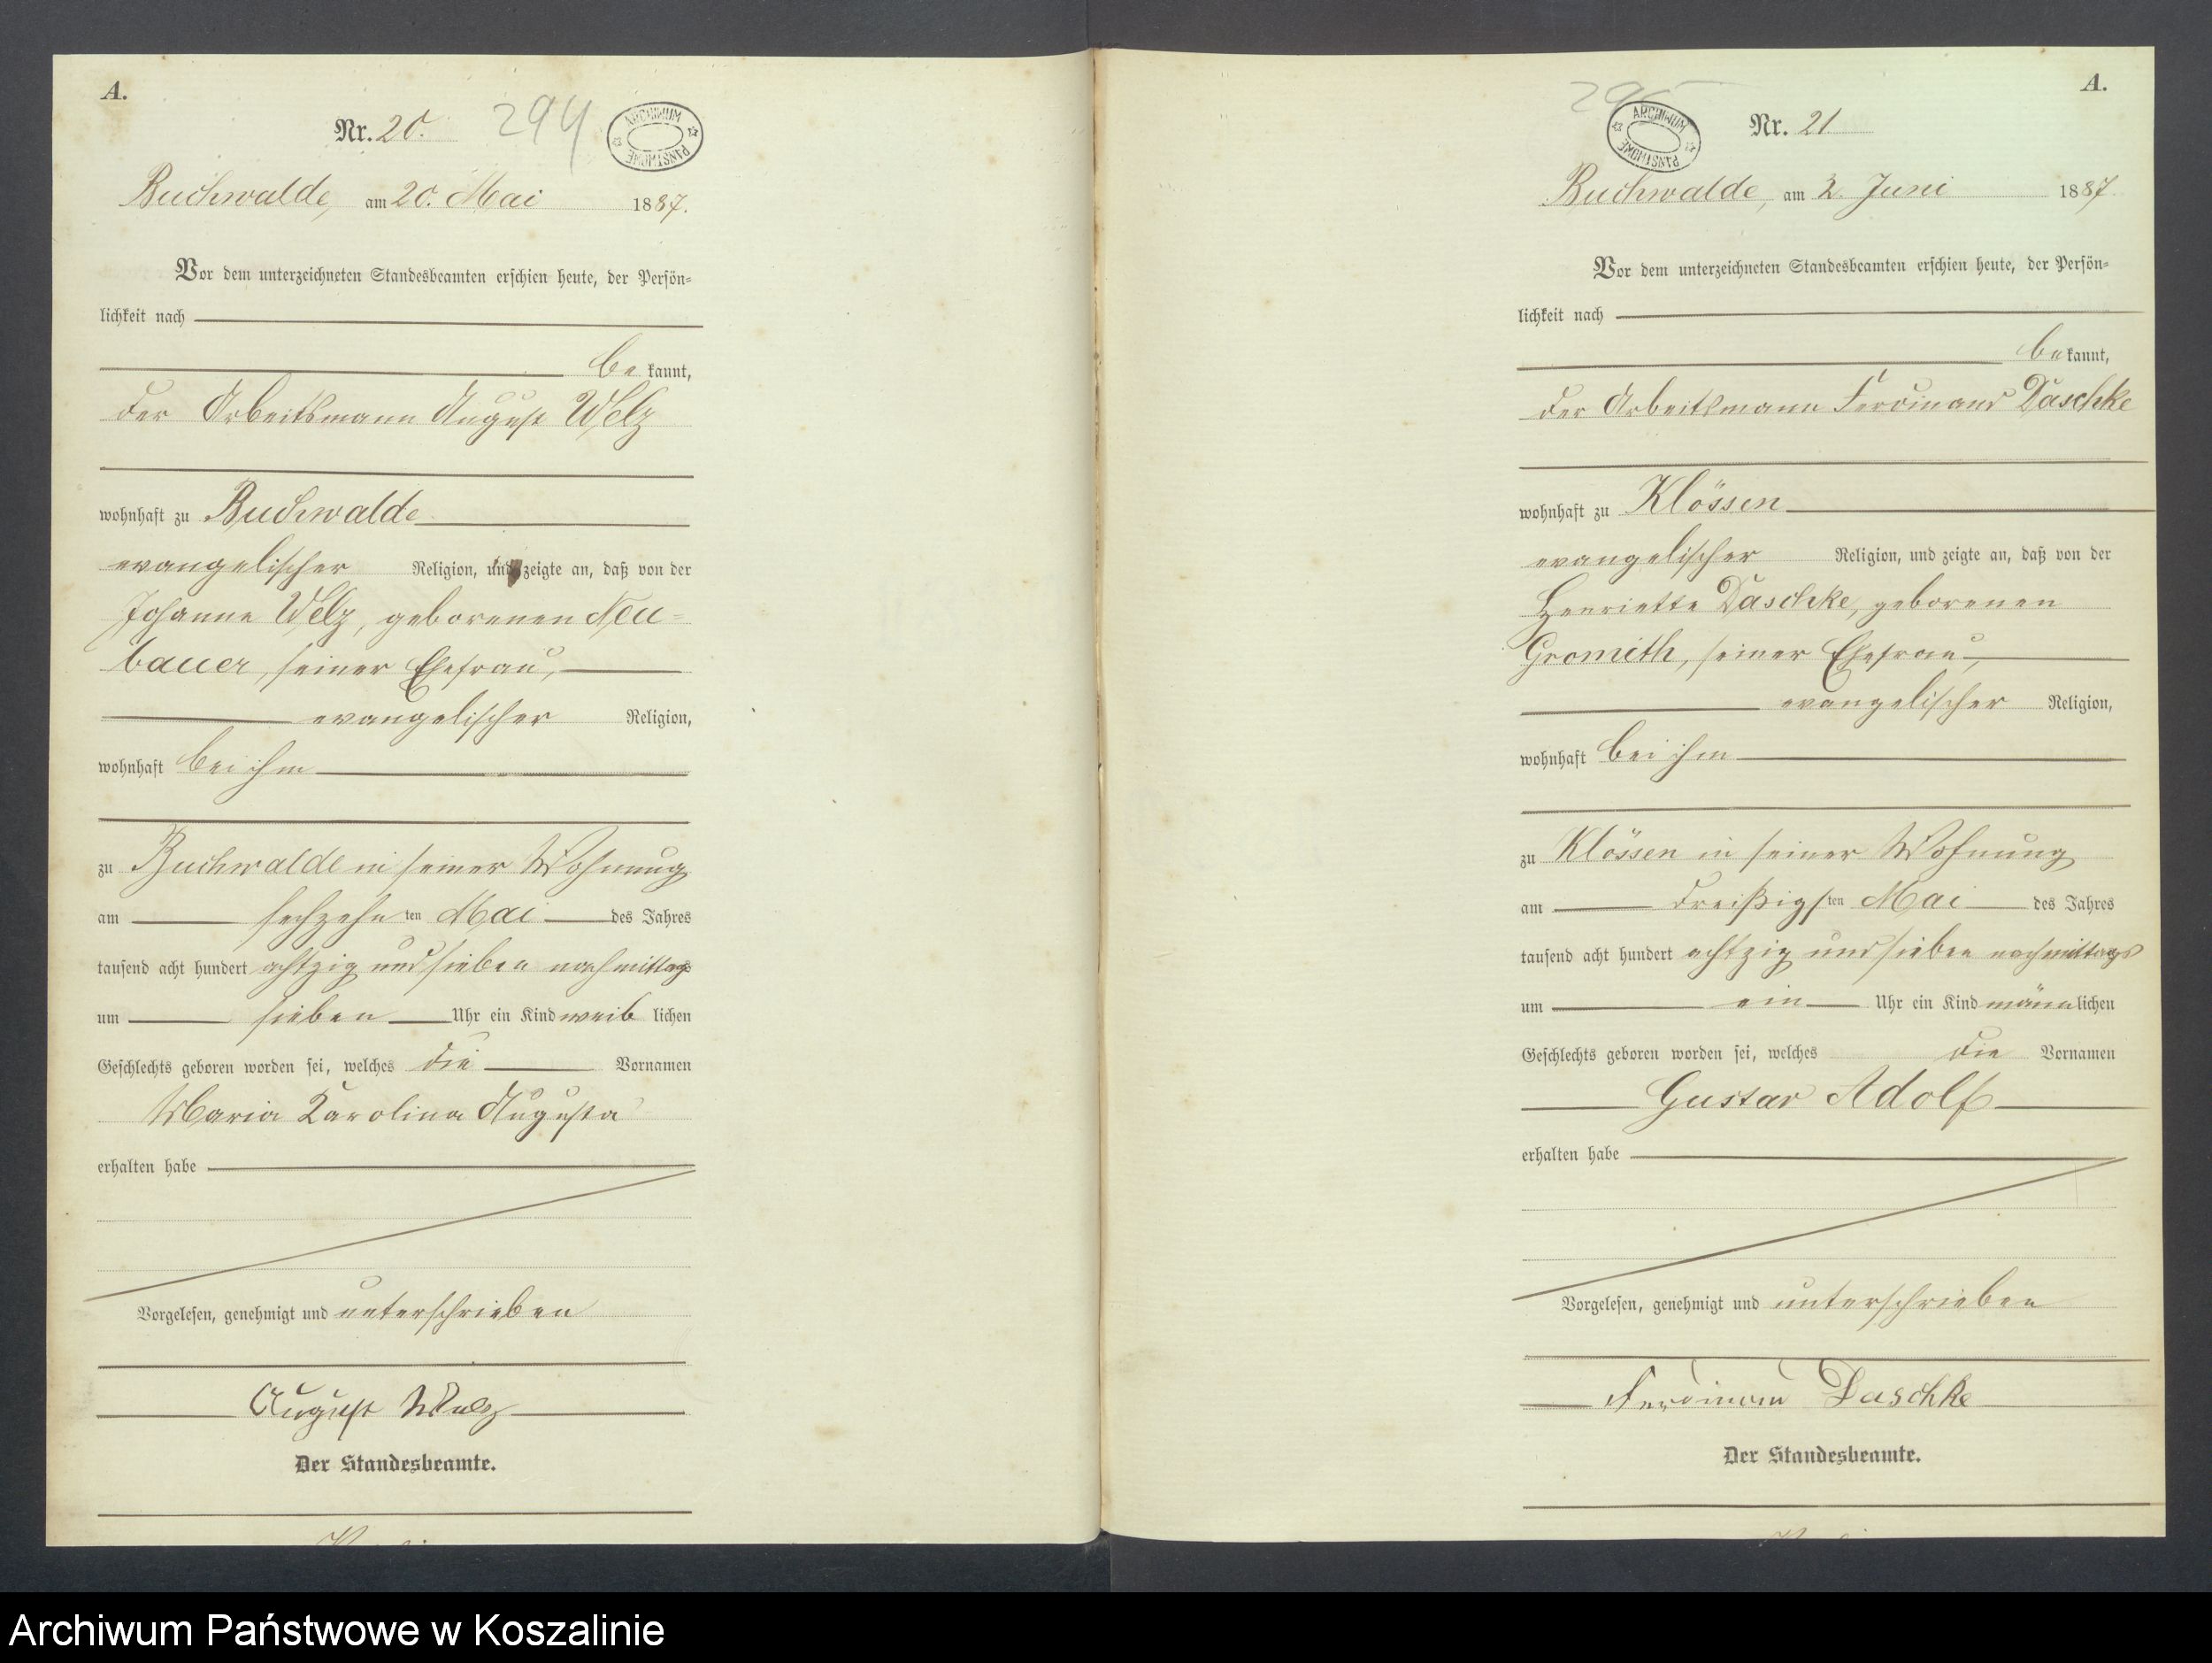 A.
Nr. 20.
294
ARCHIWUM PAŃSTWOWE
Buchwalde, am 20. Mai 1887.
Vor dem unterzeichneten Standesbeamten erschien heute, der Persön-
lichkeit nach
be kannt,
der Arbeitsmann August Welz
wohnhaft zu Buchwalde
evangelischer Religion, und zeigte an, daß von der
Johanne Welz, geborenen Neu-
bauer, seiner Ehefrau,
evangelischer Religion,
wohnhaft bei ihm
zu Buchwalde in seiner Wohnung
am sechzehn ten Mai des Jahres
tausend acht hundert achtzig und sieben nachmittags
um sieben Uhr ein Kind weib lichen
Geschlechts geboren worden sei, welches die Vornamen
Maria Karolina Augusta
erhalten habe
Vorgelesen, genehmigt und unterschrieben
August Welz
Der Standesbeamte.
A.
295
ARCHIWUM PAŃSTWOWE
Nr. 21
Buchwalde, am 2. Juni 1887.
Vor dem unterzeichneten Standesbeamten erschien heute, der Persön-
lichkeit nach
be kannt,
der Arbeitsmann Ferdinand Daschke
wohnhaft zu Klössen
evangelischer Religion, und zeigte an, daß von der
Henriette Daschke, geborenen
Gromith, seiner Ehefrau,
evangelischer Religion,
wohnhaft bei ihm
zu Klössen in seiner Wohnung
am dreißigs ten Mai des Jahres
tausend acht hundert achtzig und sieben nachmittags
um ein Uhr ein Kind männ lichen
Geschlechts geboren worden sei, welches die Vornamen
Gustav Adolf
erhalten habe
Vorgelesen, genehmigt und unterschrieben
Ferdinand Daschke
Der Standesbeamte.
Archiwum Państwowe w Koszalinie